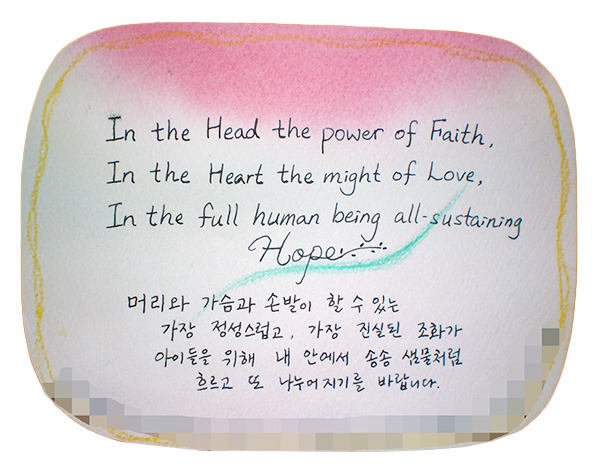 In the Head the power of Faith,
In the Heart the might of Love,
In the full human being all-sustaining
Hope
머리와 가슴과 손발이 할 수 있는
가장 정성스럽고, 가장 진실된 조화가
아이들을 위해 내 안에서 송송 샘물처럼
흐르고 또 나누어지기를 바랍니다.